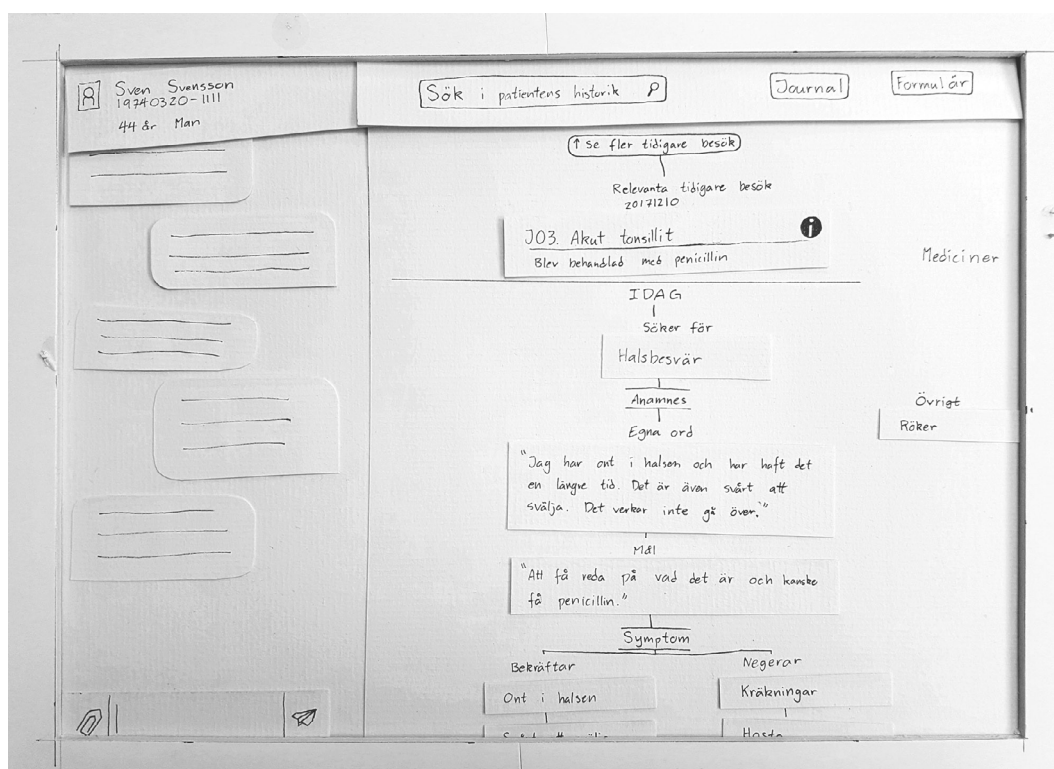 Sven Svensson
19740320-1111
44 år Man
Sök i patientens historik
Journal
Formulär
↑ Se fler tidigare besök
Relevanta tidigare besök
20171210
J03. Akut tonsillit
i
Blev behandlad med penicillin
Mediciner
IDAG
Söker för
Halsbesvär
Anamnes
Övrigt
Röker
Egna ord
"Jag har ont i halsen och har haft det
en längre tid. Det är även svårt att
svälja. Det verkar inte gå över."
Mål
"Att få reda på vad det är och kanske
få penicillin."
Symptom
Bekräftar
Negerar
Ont i halsen
Kräkningar
Hosta